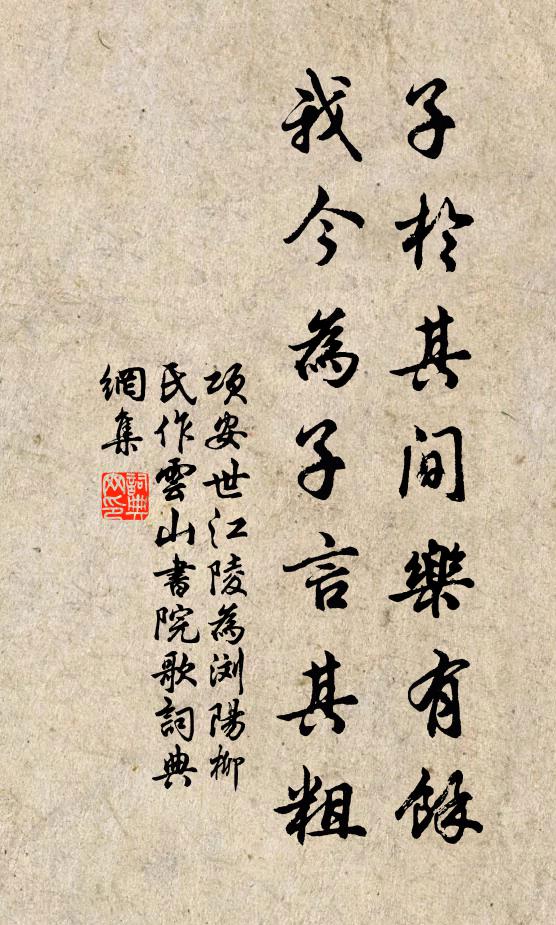 子於其間樂有餘
我今為子言其粗
項安世江陵為瀏陽柳
民作雲山書院歌詞典
網集
詞典網印